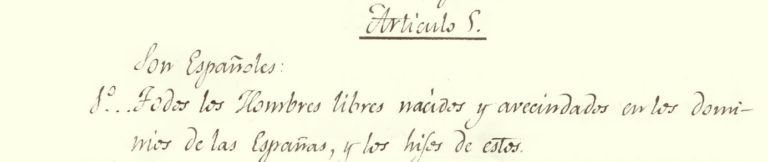 Artículo 5.
Son Españoles:
1º... Todos los Hombres libres nacidos y avecindados en los domi-
nios de las Españas, y los hijos de estos.